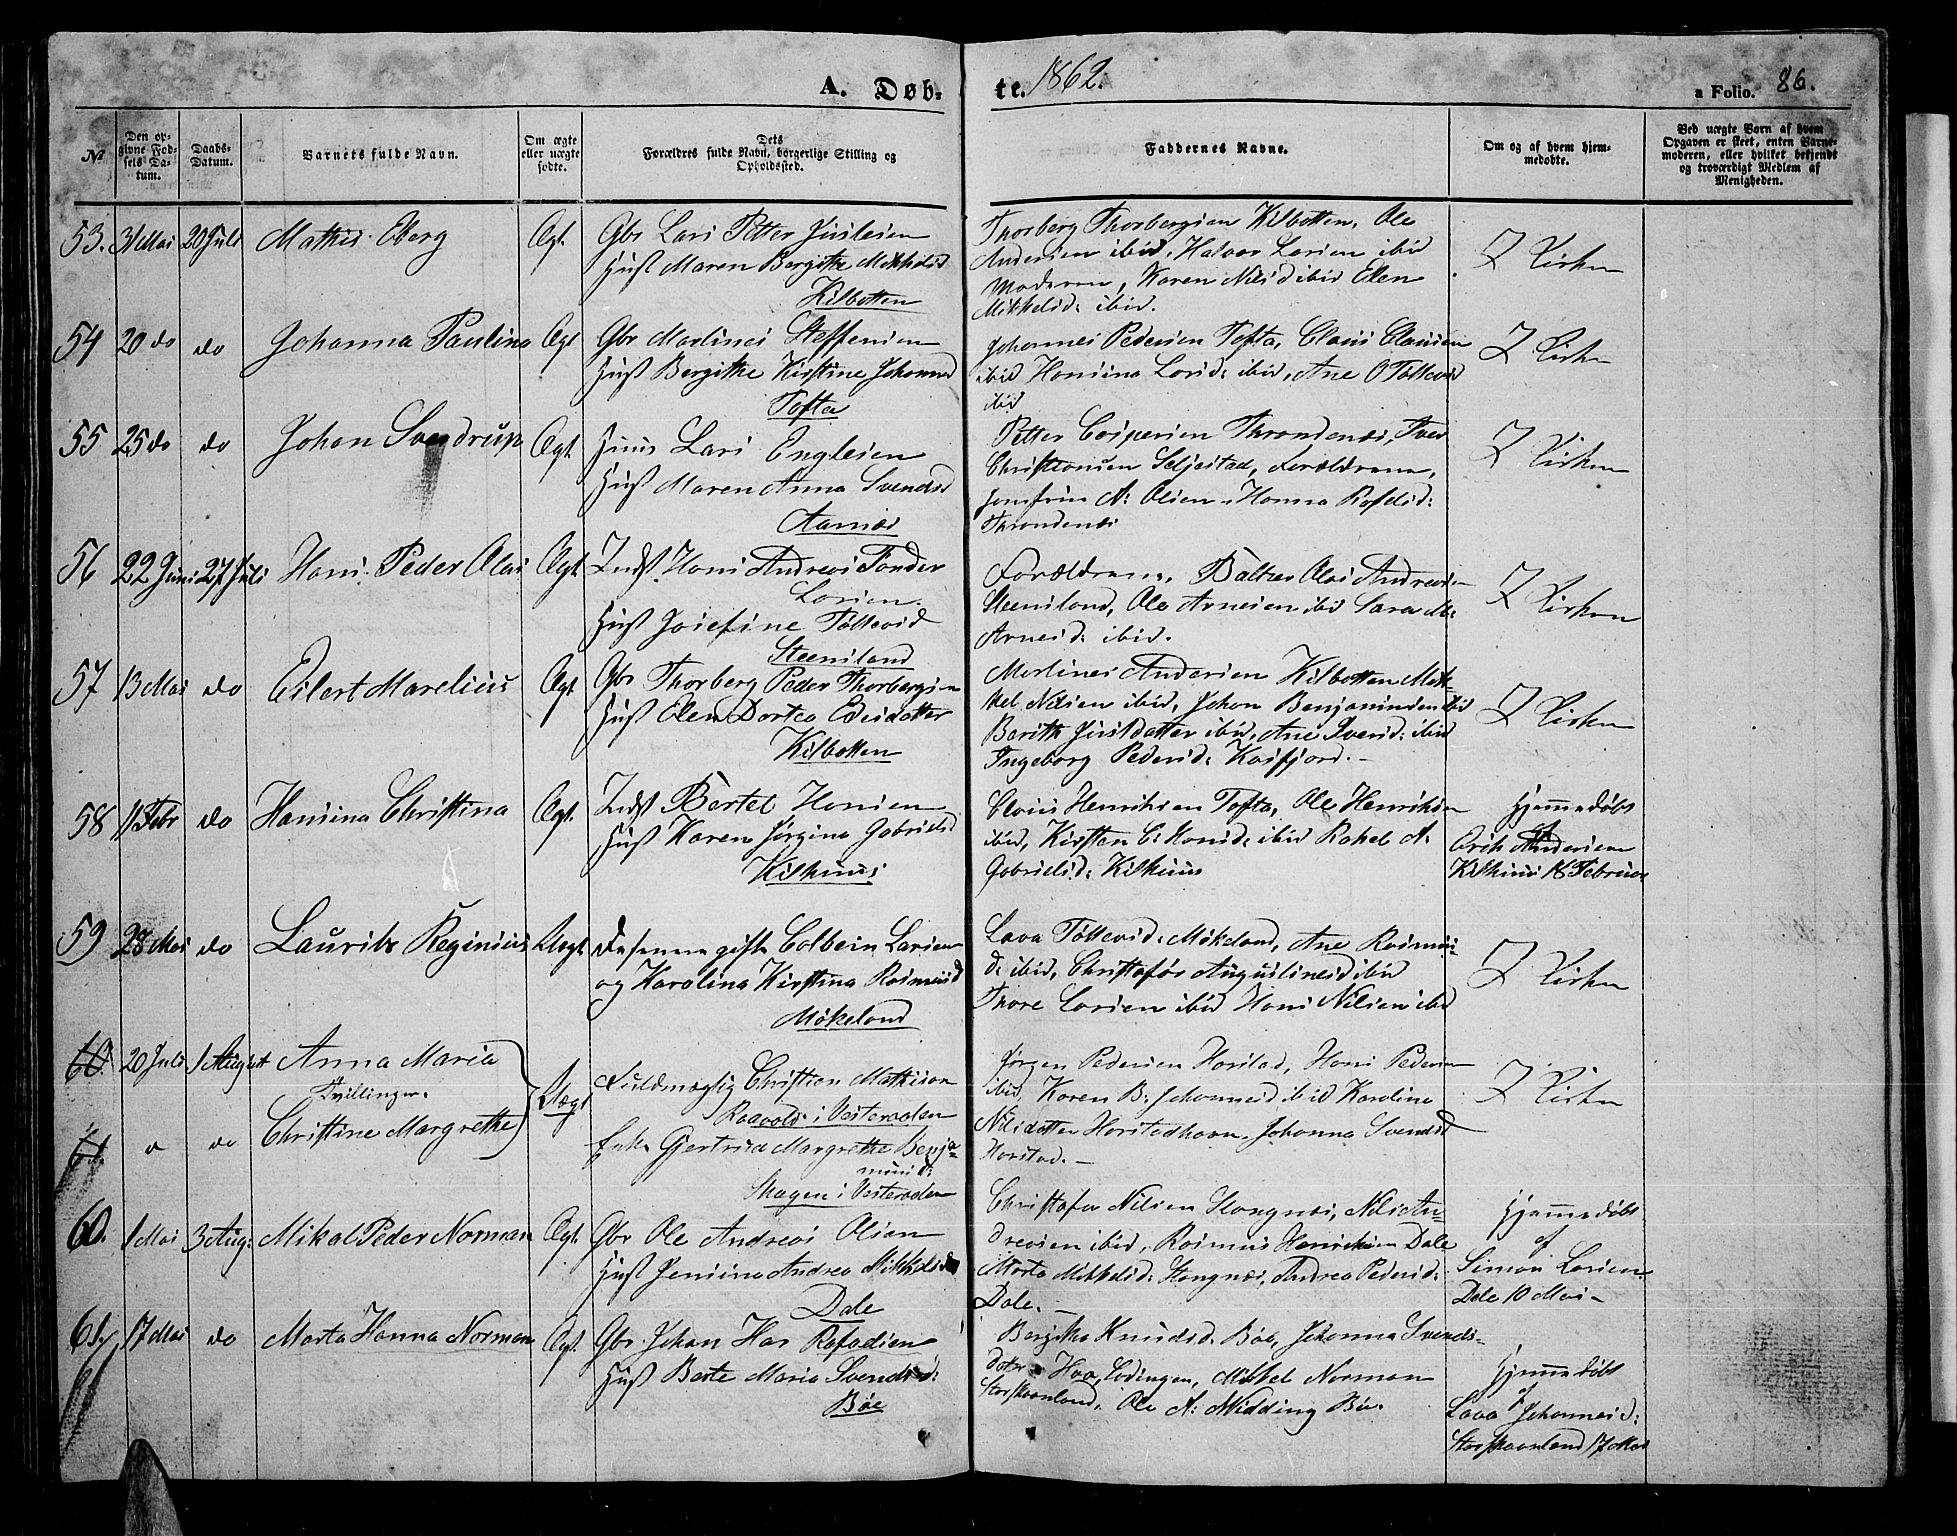 A. Døb-
te. 1862.
a Folio. 86.
№
Den op-
givne Fød-
sels Da-
tum.
Daabs-
Datum.
Barnets fulde Navn.
Om ægte
eller uægte
fødte.
Dets
Forældres fulde Navn, borgerlige Stilling og
Opholdssted.
Faddernes Navne.
Om og af hvem hjem-
medøbte.
Ved uægte Børn af hvem
Opgaven er skeet, enten Barne-
moderen, eller hvilket bekjendt
og troværdigt Medlem af
Menigheden.
53. 31 Mai 20 Juli Mathis Eberg Ægt.
Gbr Lars Petter Jensen
Hust Maren Bergithe Mikkelsd
Kilbotten
Thorberg Thorbergsen Kilbotten, Ole
Andersen ibid, Halvor Larsen ibid
Moderen, Karen Nilsd ibid Elen
Mikkelsd: ibid.
I Kirken
54 20 do do Johanna Paulina Ægt
Gbr Martines Steffensen
Hust Bergithe Kirstine Johannsd
Tofta
Johannes Pedersen Tofta, Claus Clausen
ibid Hansina Larsd: ibid, Ane O Tollevsd
ibid
I Kirken
55 25 do do Johan Svendrup Ægt.
Huus Lars Englesen
Hust Maren Anna Svendsd
Aarnæs
Petter Caspersen Throndenæs, Iver
Christiansen Seljestad, Forældrene,
Jomfru A: Olsen, Hanna Rafelsd:
Throndenæs
I Kirken
56 22 Juni 27 Juli Hans Peder Olai Ægt.
Indst Hans Andreas Tønder
Larsen
Hust Josefine Tollevsd
Steensland
Forældrene, Baltzer Olai Andreasen
Steensland, Ole Arnesen ibid Sara M:
Arnesd: ibid.
I Kirken
57 13 Mai do Eilert Marelius Ægt
Gbr Thorberg Peder Thorbergsen
Hust Elen Dortea Edisdatter
Kilbotten
Martines Andersen Kilbotten Mik-
kel Nilsen ibid, Johan Benjaminsen ibid
Berith Justdatter ibid, Ane Iversd: ibid
Ingeborg Pedersd: Kasfjord.
I Kirken
58 11 Febr do Hansina Christina Ægt.
Indst Bertel Hansen
Hust Karen Jørgina Gabrielsd
Kilhuus
Claus Henriksen Tofta, Ole Henriksen
ibid, Kirsten C: Hansd: ibid Rakel A:
Gabrielsd: Kilhuus
Hjemmedøbt
af
Erik Andersen
Kilhuus 18 Februar
59 28 Mai do Laurits Reginius Uægt
Colbein Larsen
og Karolina Kirstina Rasmusd
Møkeland
Lava Tollevsd: Møkeland, Ane Rasmus-
d: ibid, Christoffer Augustinesd ibid
Thore Larsen ibid Hans Nilsen ibid
I Kirken
60. 20 Juli 1 August Anna Maria
Tvillinger.
61. do Christine Margrethe
Uægt
Fuldmægtig Christian Mathison
i Vesteraalen
Enke Gjertrud Margrethe Benja-
minsd:
Skagen i Vesteraalen
Jørgen Pedersen Harstad, Hans Pedersen
ibid, Karen B: Johannesd ibid Karolina
Nilsdatter Harstadhavn, Johanna Svendsd
Harstad.
I Kirken
60. 1 Mai 3 Aug: Mikal Peder Norman Ægt.
Gbr Ole Andreas Olsen
Hust Jensina Andrea Mikkelsd
Dale
Christofer Nilsen Stangnæs, Nils An-
dreasen ibid, Rasmus Henriksen Dale
Marta Mikkelsd: Stangnæs, Andrea Pedersd:
Dale.
Hjemmedøbt
af
Simon Larsen
Dale 10 Mai
61. 17 Mai do Marta Hanna Norman Ægt.
Gbr Johan Has Rafaelsen
Hust Berte Maria Svendsd:
Bøe
Bergithe Knudsd. Bøe, Johanna Svends-
datter Lødingen, Mikkel Norman
Storskaanland, Ole A: Midding Bøe.
Hjemmedøbt
af
Lava Johannesd:
Storskaanland 17 Mai